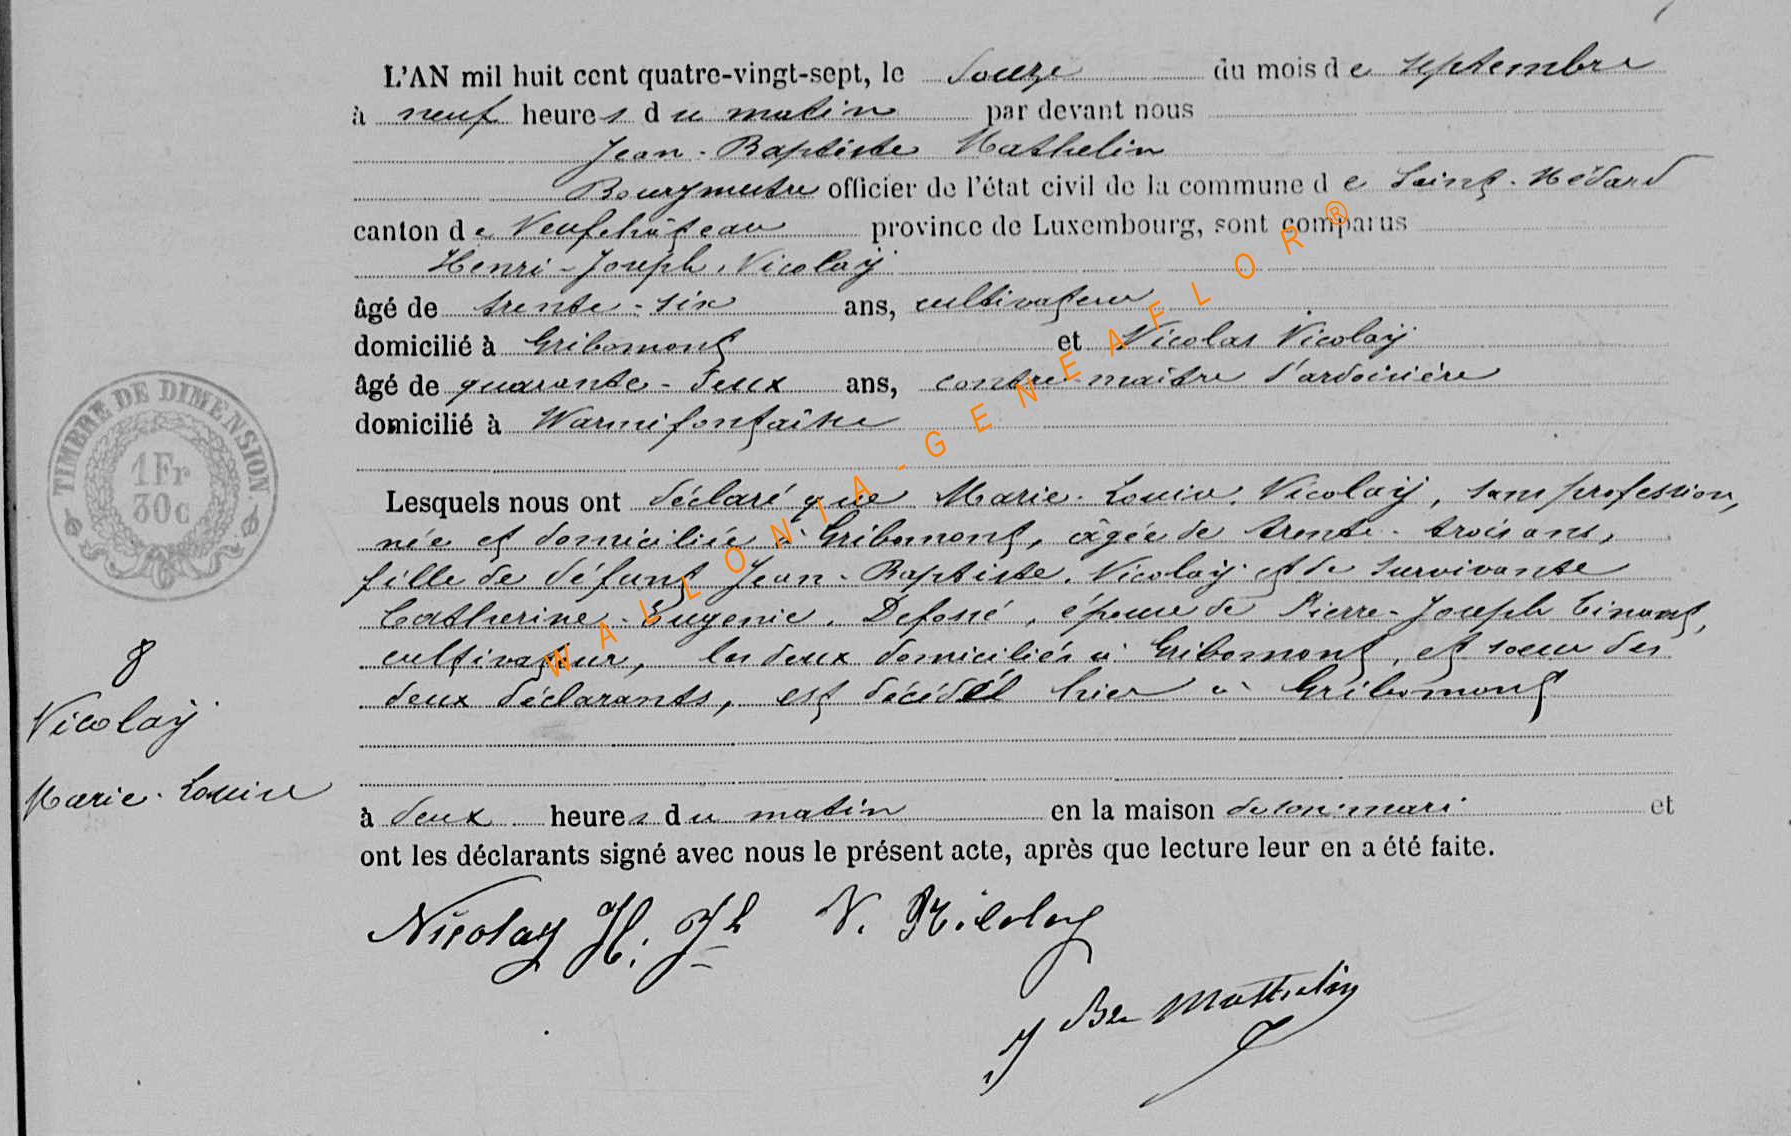 L'AN mil huit cent quatre-vingt-sept, le douze du mois de septembre
à neuf heures du matin par devant nous
Jean-Baptiste Mathelin
Bourgmestre officier de l'état civil de la commune de Saint-Médard
canton de Neufchâteau province de Luxembourg, sont comparus
Henri-Joseph Nicolaÿ
âgé de trente-six ans, cultivateur
domicilié à Gribomont et Nicolas Nicolaÿ
âgé de quarante-deux ans, contre-maître d'ardoisière
domicilié à Warmifontaine
Lesquels nous ont déclaré que Marie-Louise Nicolaÿ, sans profession,
née et domiciliée à Gribomont, âgée de trente-trois ans,
fille de défunt Jean-Baptiste Nicolaÿ et de survivante
Catherine-Eugenie Defossé, épouse de Pierre-Joseph Tinant,
cultivateur, les deux domiciliés à Gribomont, et soeur des
deux déclarants, est décédé hier à Gribomont
à deux heures du matin en la maison de son mari et
ont les déclarants signé avec nous le présent acte, après que lecture leur en a été faite.
Nicolay H. Jh N. Nicolay
J Bte Mathelin
TIMBRE DE DIMENSION.
1 Fr
30c
8
Nicolaÿ
Marie-Louise
WALLONIA-GENEAFLOR®